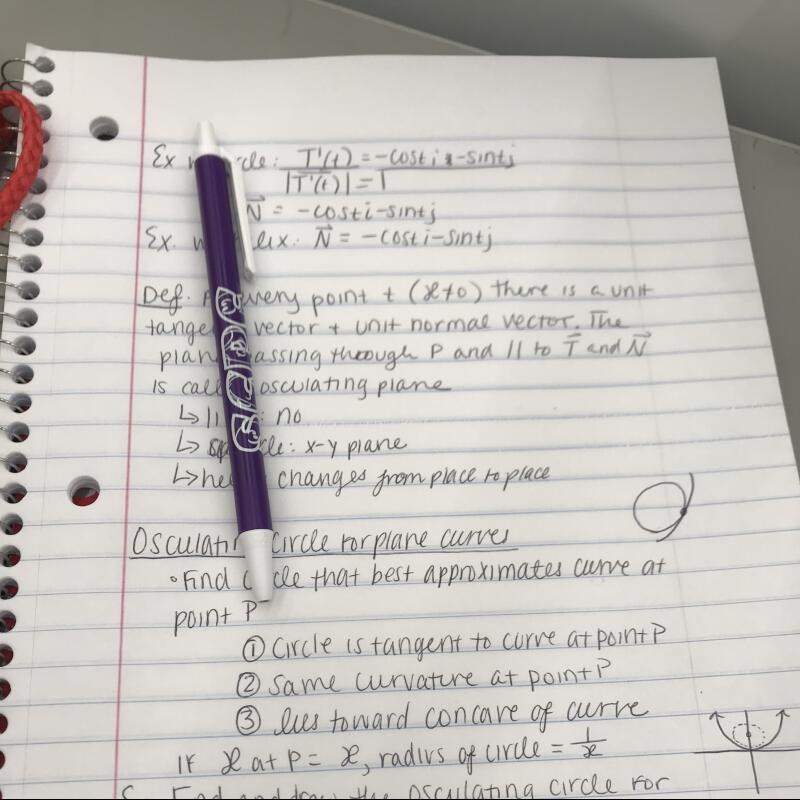 Ex cle: T'(t) = -costi -sintj
|T'(t)| = 1
N⃗ = -costi-sintj
Ex. lix: N⃗ = -costi-sintj
Def. very point t (ϰ≠0) there is a unit
tange vector + unit normal vector. The
plan assing through P and || to T⃗ and N⃗
is cal osculating plane
↳ li : no
↳ cle: x-y plane
↳ he changes from place to place
Osculatin circle for plane curves
◦ Find c cle that best approximates curve at
point P
① Circle is tangent to curve at point P
② same curvature at point P
③ lies toward concave of curve
If ϰ at P = ϰ, radius of circle = 1/ϰ
Find and draw the osculating circle for